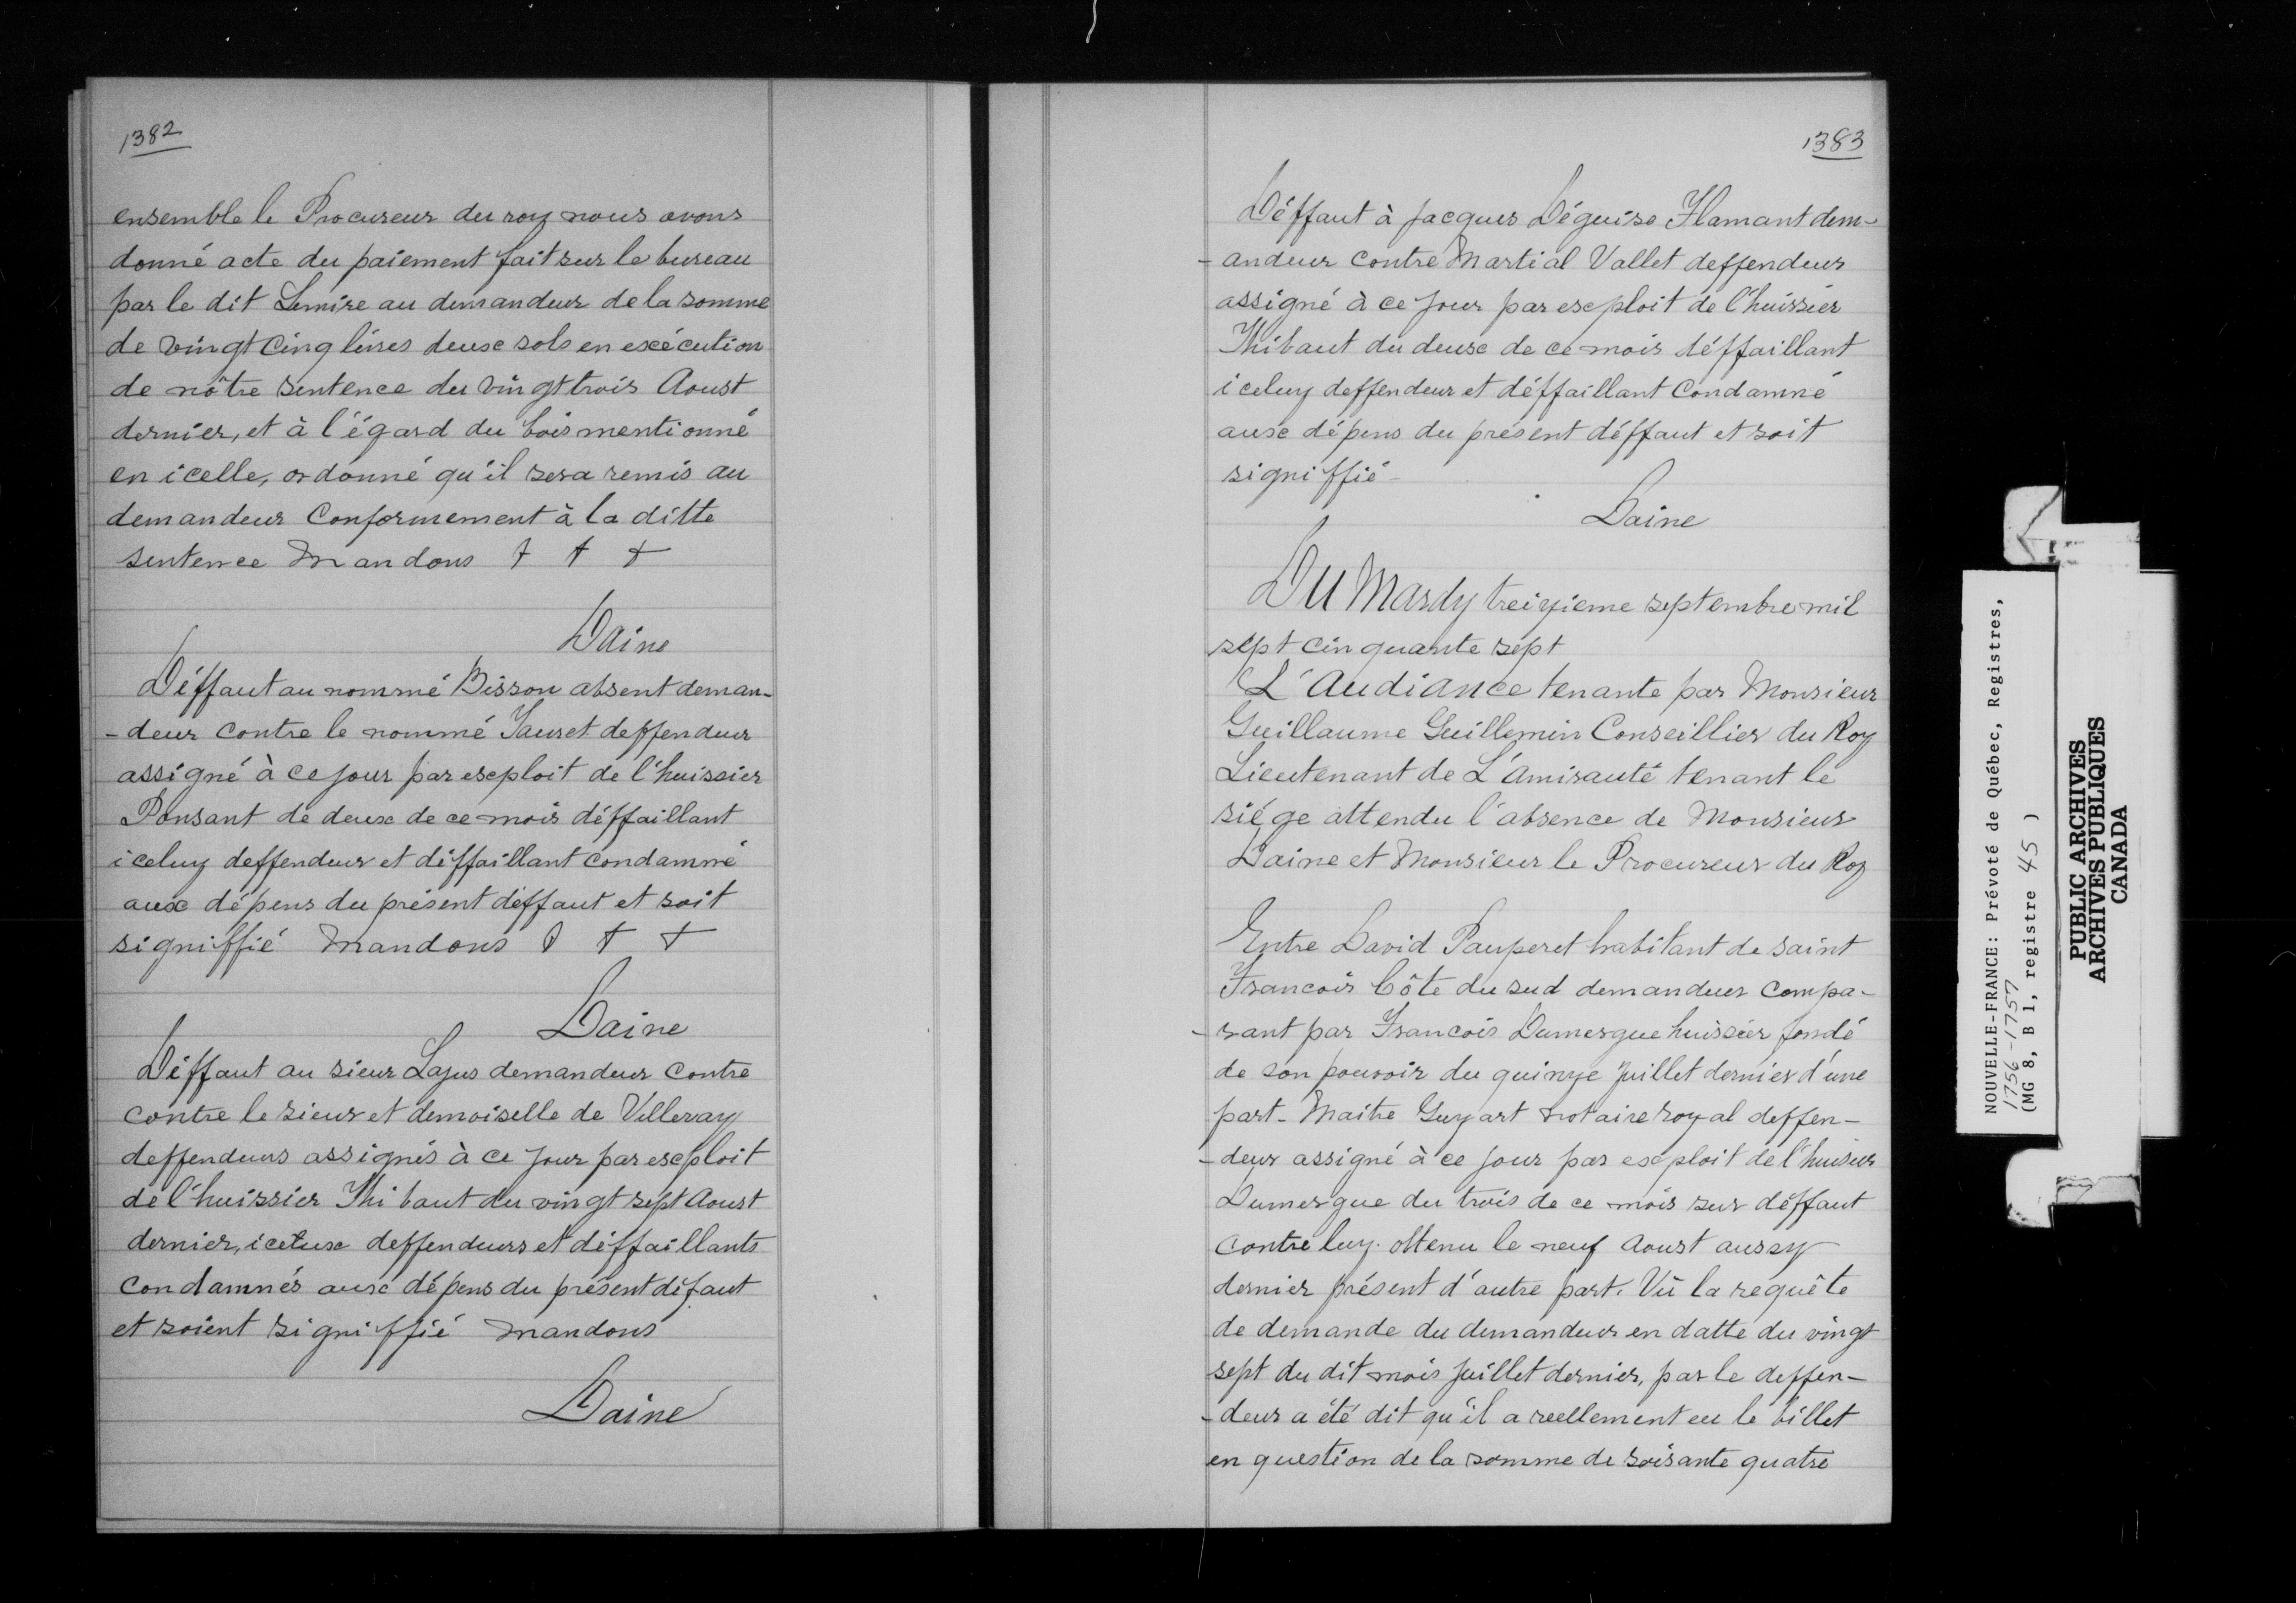 1382
ensemble le Procureur du roy nous avons
donné acte du paiement fait sur le bureau
par le dit Lemire au demandeur de la somme
de vingt cinq livres deux sols en exécution
de nôtre sentence du vingt trois Aoust
dernier, et à l'égard du bois mentionné
en icelle, ordonné qu'il sera remis au
demandeur Conformement à la ditte
sentence Mandons † † †
Daine
Déffaut au nommé Bisson absent deman-
-deur contre le nommé deffendeur
assigné à ce jour par exploit de l'huissier
Ponsant de deux de ce mois déffaillant
iceluy deffendeur et déffaillant condamné
aux dépens du présent déffaut et soit
signiffié Mandons † † †
Daine
Déffaut au sieur Lajus demandeur contre
contre le sieur et demoiselle de Villeray
deffendeurs assignés à ce jour par exploit
de l'huissier Thibaut du vingt sept Aoust
dernier, iceluse deffendeurs et déffaillants
condamnés aux dépens du présent défaut
et soient signiffié Mandons
Daine
1383
Déffaut à Jacques Déguise Flamant dem-
-andeur contre Martial Vallet deffendeur
assigné à ce jour par exploit de l'huissier
Thibaut du deux de ce mois déffaillant
iceluy deffendeur et déffaillant Condamné
aux dépens du présent déffaut et soit
signiffié -
Daine
DU Mardy treizieme septembre mil
sept cinquante sept
L'Audiance tenante par Monsieur
Guillaume Guillemin Conseillier du Roy
Lieutenant de L'amirauté tenant le
siége attendu l'absence de Monsieur
Daine et Monsieur le Procureur du Roy
Entre David Pauperet habitant de saint
Francois Côte du sud demandeur compa-
-rant par Francois Dumergue huissier fondé
de son pouvoir du quinze juillet dernier d'une
part - Maitre Guyart notaire royal deffen-
-deur assigné à ce jour par exploit de l'huissier
Dumergue du trois de ce mois sur déffaut
contre luy obtenu le neuf Aoust aussy
dernier présent d'autre part. Vû la requête
de demande du demandeur en datte du vingt
sept du dit mois juillet dernier, par le deffen-
-deur a été dit qu'il a reellement eu le billet
en question de la somme de soisante quatre
NOUVELLE-FRANCE: Prévoté de Québec, Registres,
1756-1757
(MG 8, B 1, registre 45 )
PUBLIC ARCHIVES
ARCHIVES PUBLIQUES
CANADA